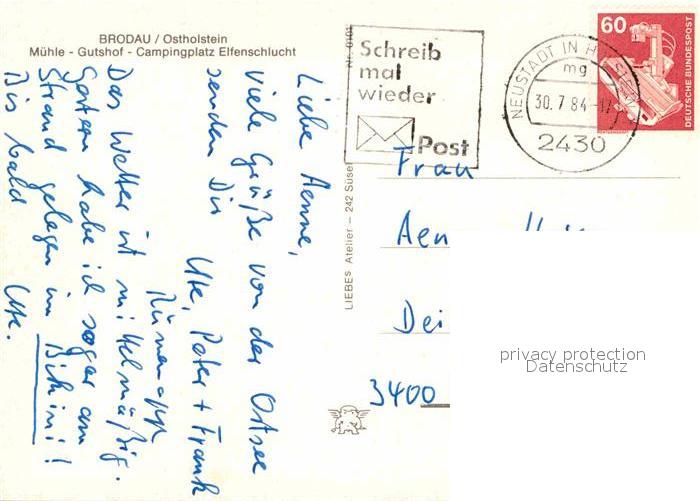 BRODAU / Ostholstein
Mühle - Gutshof - Campingplatz Elfenschlucht
Liebe Aenne,
Viele Grüße von der Ostsee
senden Dir
Ute, Peter + Frank
Das Wetter ist mittelmäßig.
Gestern habe ich sogar am
Strand gelegen im Bikini!
Bis bald
Ute.
LIEBES Atelier – 242 Süsel
Schreib
mal
wieder
Post
NEUSTADT IN HOLSTEIN
mg
30.7.84-17
2430
60
DEUTSCHE BUNDESPOST
Frau
Aen
Dei
3400
privacy protection
Datenschutz